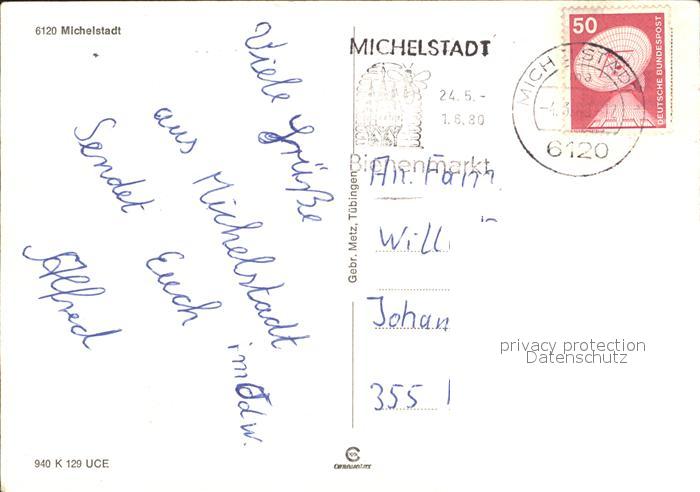 6120 Michelstadt
Viele Grüße
aus Michelstadt
im Odw.
Sendet Euch
Alfred
940 K 129 UCE
Gebr. Metz, Tübingen
MICHELSTADT
24.5.-
1.6.80
Bienenmarkt
MICHELSTADT
6120
50
DEUTSCHE BUNDESPOST
An. Fam.
Willi
Johan
355
privacy protection
Datenschutz